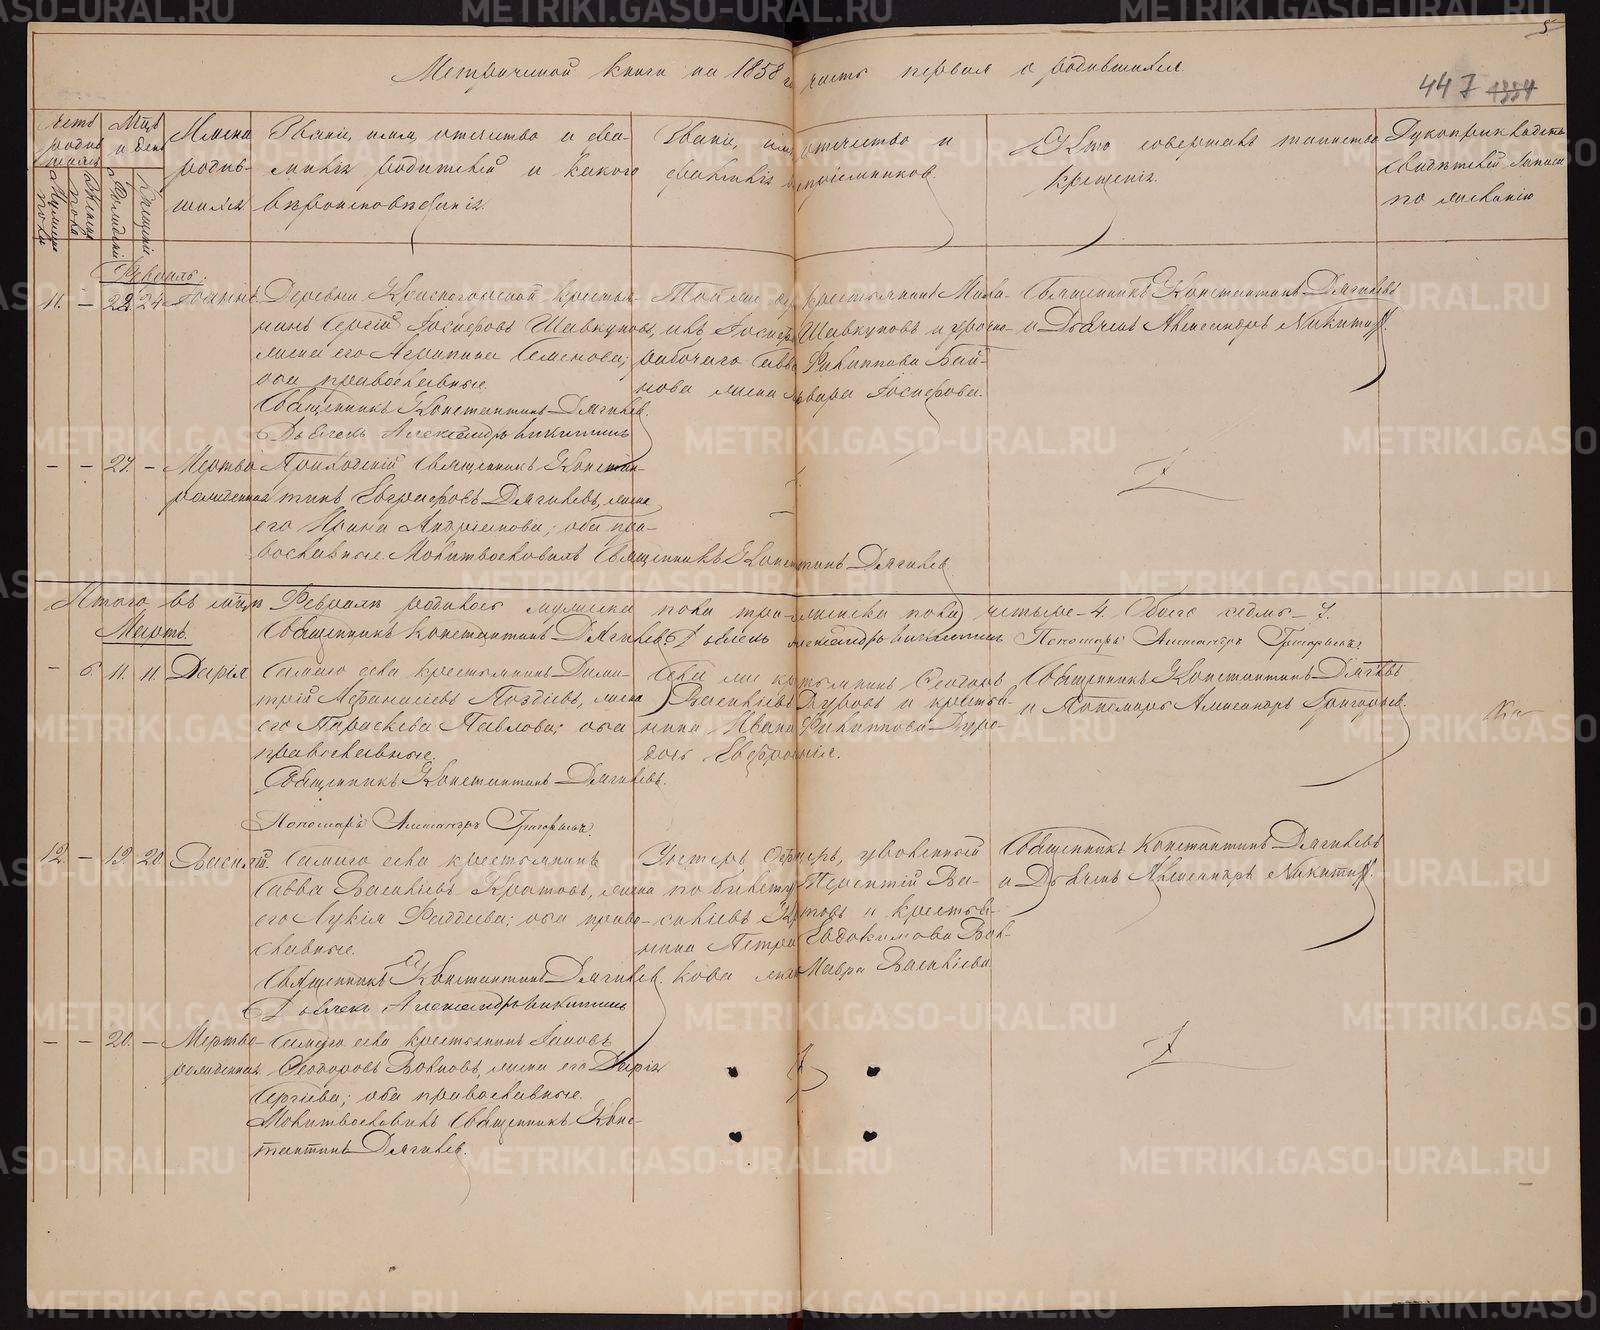 5
Метрической книги на 1858 годъ часть первая о родившихся
447 1334
Счетъ родившихся
Мужеска пола
Женска пола
Мѣсяцъ и день
Рожденія
Крещенія
Имена родившихся
Званіе, имя, отчество и фамилія родителей и какого вѣроисповѣданія.
Званіе, имя, отчество и фамилія воспріемниковъ.
Кто совершалъ таинство крещенія.
Рукоприкладство свидѣтелей записи по желанію
Февраль.
11. – 22. 24. Іоаннъ
Деревни Красногорской крестья-
нинъ Сергій Іосифовъ Шавкуновъ,
жена его Агрипина Семенова;
оба православные.
Священникъ Константинъ Дягилевъ.
Дьячекъ Александръ Никитинъ
Тойже дер. крестьянинъ Миха-
илъ Іосифовъ Шавкуновъ и урочно-
рабочаго Саввы Филиппова Бай-
нова жена Варвара Іосифова.
Священникъ Константинъ Дягилевъ
и Дьячекъ Александръ Никитинъ
– – 27. – Мертво
рожденная
Приходскій Священникъ Констан-
тинъ Евграфовъ Дягилевъ, жена
его Ирина Андреянова; оба пра-
вославные. Молитвословилъ Священникъ Константинъ Дягилевъ
Итого въ мѣсяцѣ Февралѣ родилось мужеска пола три – женска пола четыре – 4. Обоего седмь – 7.
Священникъ Константинъ Дягилевъ. Дьячекъ Александръ Никитинъ Пономарь Александръ Григорьевъ
Мартъ.
– 6. 11. 11. Дарія
Самаго села крестьянинъ Дими-
трій Афанасіевъ Поздѣевъ, жена
его Параскева Павлова; оба
православные.
Священникъ Константинъ Дягилевъ.
Пономарь Александръ Григорьевъ.
Села же крестьянинъ Ѳеодоръ
Василіевъ Дуровъ и крестья-
нина Ивана Филиппова Дуро-
дочь Евфросинія.
Священникъ Константинъ Дягилевъ
и Пономарь Александръ Григорьевъ.
12. – 19. 20. Василій.
Самаго села крестьянинъ
Савва Василіевъ Кротовъ, жена
его Лукія Фаддеева; оба право-
славные.
Священникъ Константинъ Дягилевъ.
Дьячекъ Александръ Никитинъ
Унтеръ Офицеръ, уволенный
по билету Терентій Ва-
силіевъ Кротовъ и крестья-
нина Петра Евдокимова Вол-
кова жена Мавра Василіева.
Священникъ Константинъ Дягилевъ
и Дьячекъ Александръ Никитинъ.
– – 20. – Мертво-
рожденная
Самаго села крестьянинъ Іаковъ
Ѳеодоровъ Волковъ, жена его Дарія
Сергіева; оба православные.
Молитвословилъ Священникъ Конс-
тантинъ Дягилевъ.
METRIKI.GASO-URAL.RU